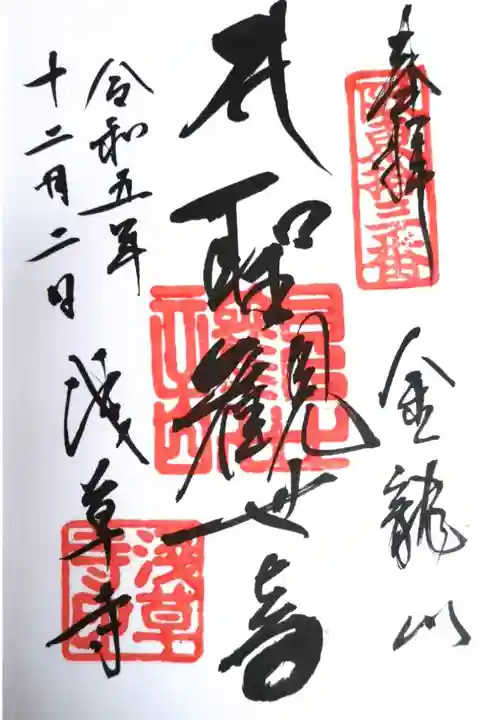 奉拝
坂東拾三番
金龍山
聖観世音
浅草寺
令和五年
十二月二日
浅草
寺印